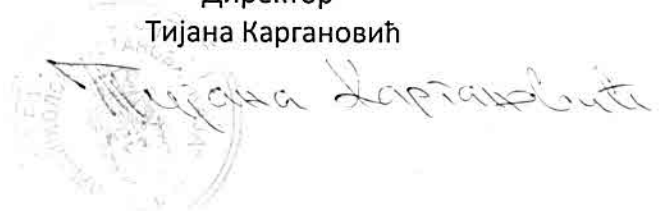 Директор
Тијана Каргановић
Тијана Каргановић